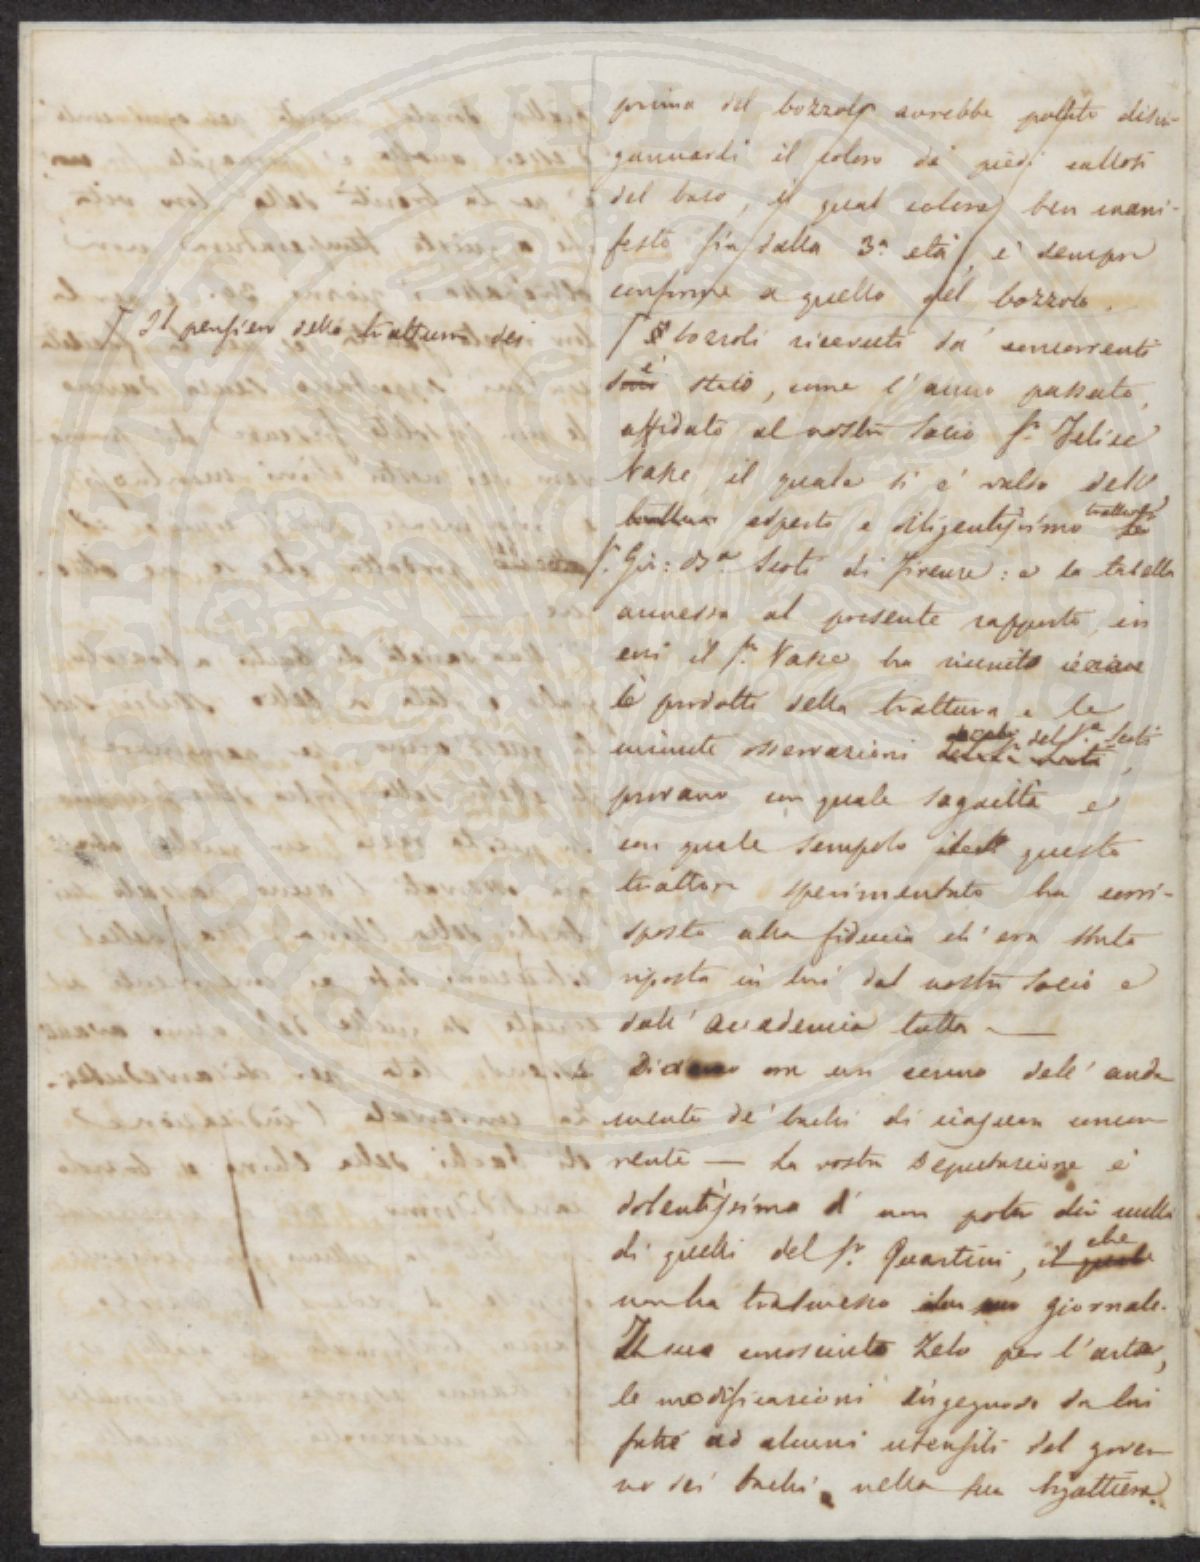 prima del bozzolo avrebbe potuto disin-
gannarli il colore de' piedi
del baco, il qual colore, ben mani-
festo fin dalla 3ª. età, è sempre
conforme a quello del bozzolo.
Il pensiero della trattura dei
bozzoli ricevuti da' concorrenti
è stato, come l'anno passato,
affidato al nostro Socio Sr. Felice
Vasse, il quale si è valso dell'
esperto e diligentissimo trattore
Sr. Gio: Bª. Scoti di Firenze: e la tabella
annessa al presente rapporto, in
cui il Sr. Vasse ha riunito
i prodotti della trattura e le
minute osservazioni del Sr. Scoti,
provano con quale sagacità e
con quale scrupolo questo
trattore sperimentato ha corri-
sposto alla fiducia ch'era stata
riposta in lui dal nostro Socio e
dall'Accademia tutta —
Diciamo ora un cenno dell'anda-
mento de' bachi di ciascun concor-
rente — La vostra Deputazione è
dolentissima di non poter dir nulla
di quelli del Sr. Quartini, che
non ha trasmesso giornale.
Il suo conosciuto zelo per l'arte,
le modificazioni ingegnose da lui
fatte ad alcuni utensili del gover-
no dei bachi, nella sua bigattiera